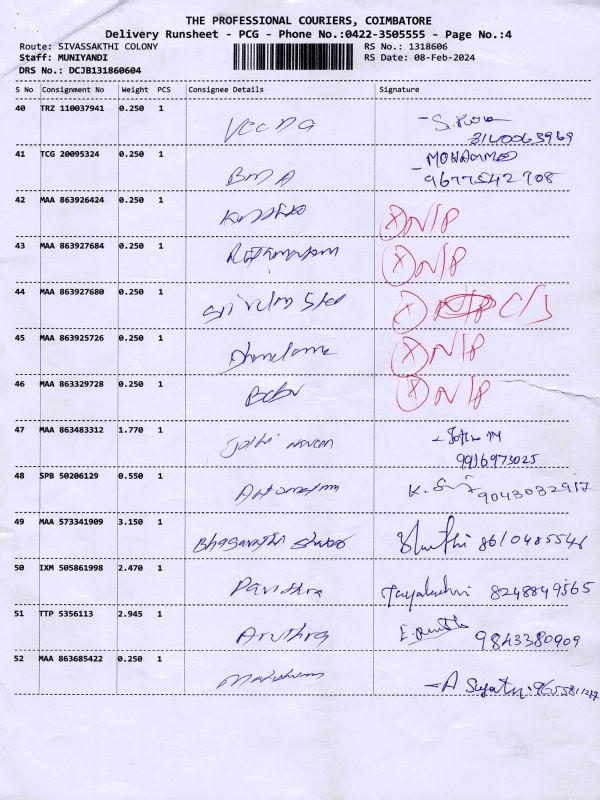 THE PROFESSIONAL COURIERS, COIMBATORE
Delivery Runsheet - PCG - Phone No.:0422-3505555 - Page No.:4
Route: SIVASSAKTHI COLONY RS No.: 1318606
Staff: MUNIYANDI RS Date: 08-Feb-2024
DRS No.: DCJB131860604
S No Consignment No Weight PCS Consignee Details Signature
40 TRZ 110037941 0.250 1
3140063969
41 TCG 20095324 0.250 1 BMA MOHAMMED
9677542708
42 MAA 863926424 0.250 1 X N/P
43 MAA 863927684 0.250 1 X N/P
44 MAA 863927680 0.250 1 Sri Velm Steel X C/S
45 MAA 863925726 0.250 1 X N/P
46 MAA 863329728 0.250 1 X N/P
47 MAA 863483312 1.770 1 Jothi
9916973025
48 SPB 50206129 0.550 1 K.
9043032917
49 MAA 573341909 3.150 1 8610485546
50 IXM 505861998 2.470 1 Pavithra 8248849565
51 TTP 5356113 2.945 1 Aruthra 9843380909
52 MAA 863685422 0.250 1 A